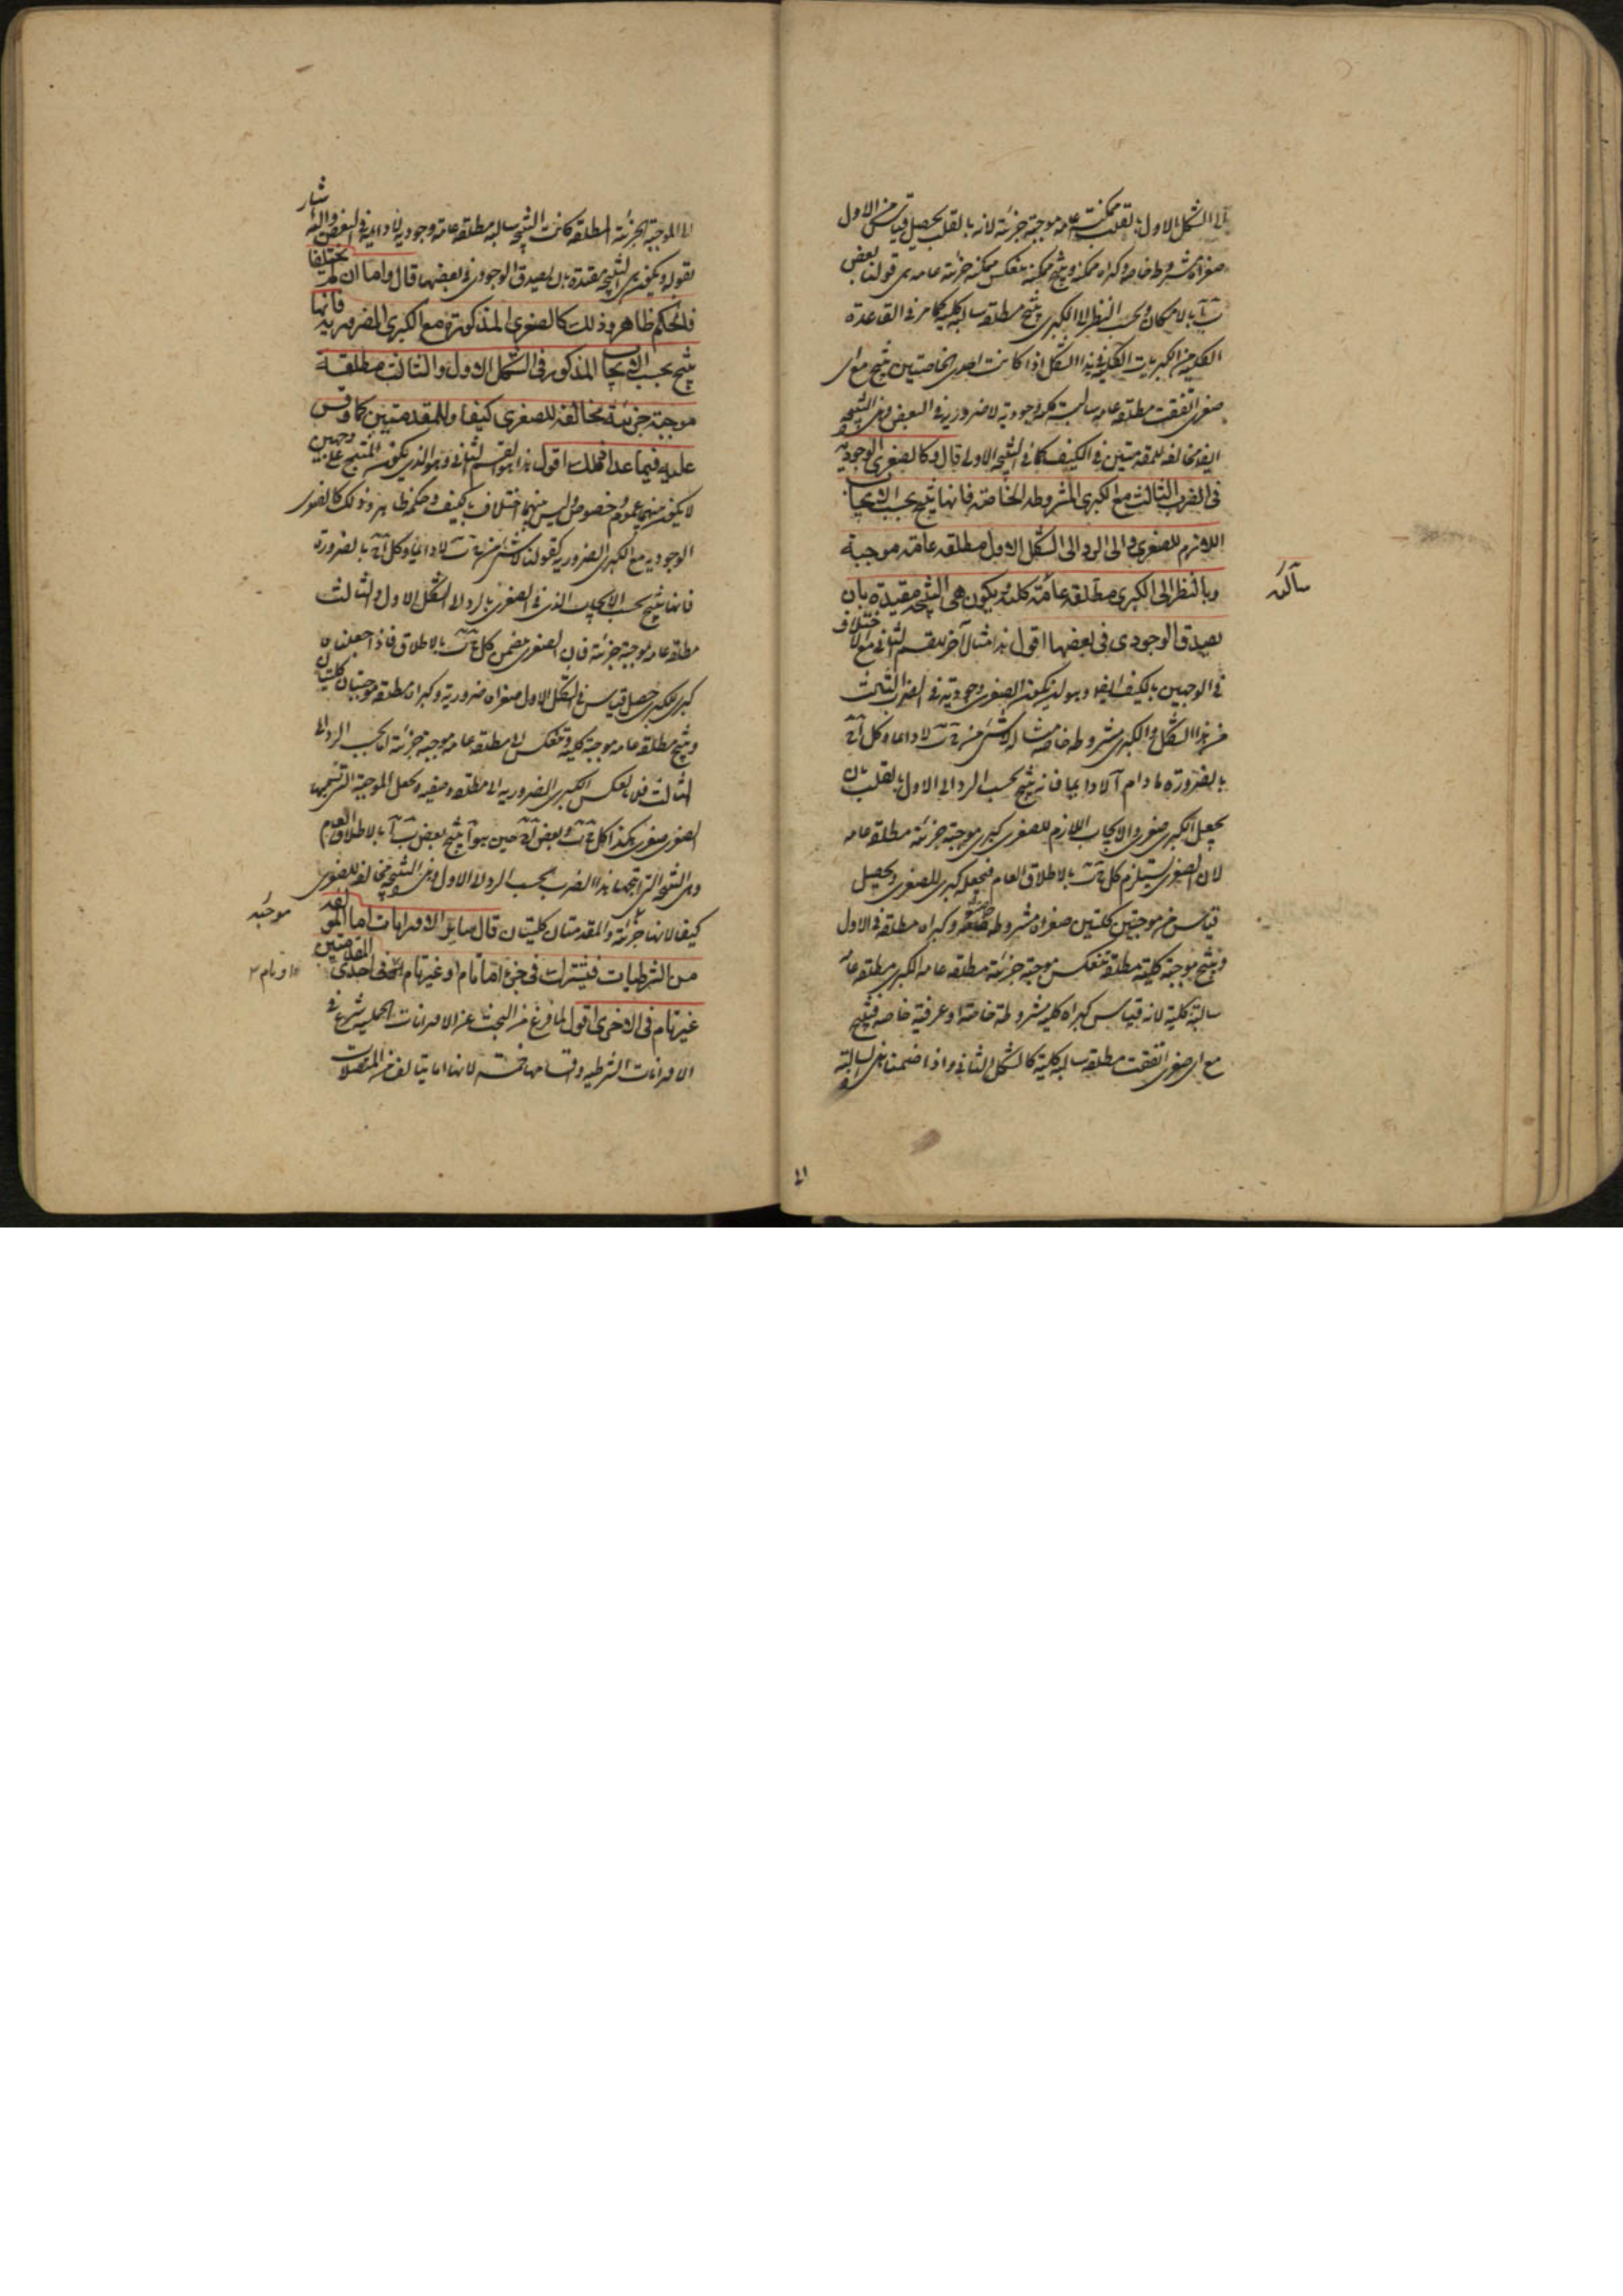 الى الشكل الاول بالقلب ممكنة عامة موجبة جزئية لانه بالقلب يحصل قياس من الاول
صغراه مشروطة خاصة وكبراه ممكنة وينتج ممكنة تنعكس ممكنة جزئية عامة هى قولنا بعض
ب آ بالامكان وبحسب النظر الى الكبرى ينتج مطلقة سالبة كلية كما مر فى القاعدة
الكلية من الكبريات الكلية فى هذا الشكل اذا كانت احدى الخاصتين ينتج مع اى
صغرى اتفقت مطلقة عامة سالبة كلية وجودية لا ضرورية فى البعض وهى النتيجة
ايضا مخالفة للمقدمتين فى الكيف كما فى النتيجة الاولى قال وكالصغرى الوجودية
فى الضرب الثالث مع الكبرى المشروطة الخاصة فانها تنتج بحسب الايجاب
اللازم للصغرى والى الرد الى الشكل الاول مطلقة عامة موجبة
وبالنظر الى الكبرى مطلقة عامة كلية ويكون هى النتيجة مقيدة بان
سالبه
يصدق الوجودى فى بعضها اقول هذا مثال آخر للقسم الثانى مع الاختلاف
فى الوجهين بالكيف ايضا وهو ان يكون الصغرى وجودية فى الضرب الثالث
من هذا الشكل والكبرى مشروطة خاصة مثاله لا شئ من ج ب لا دائما وكل آ ج
بالضرورة ما دام آ لا دائما فانه ينتج بحسب الرد الى الاول بالقلب بان
يجعل الكبرى صغرى والايجاب اللازم للصغرى كبرى موجبة جزئية مطلقة عامة
لان الصغرى يستلزم كل ج ب بالاطلاق العام فنجعله كبرى للصغرى ويحصل
قياس من موجبتين كليتين صغراه مشروطة خاصة وكبراه مطلقة فى الاول
وينتج موجبة كلية مطلقة تنعكس موجبة جزئية مطلقة عامة الكبرى مطلقة عامة
سالبة كلية لانه قياس كبراه كلية مشروطة خاصة او عرفية خاصة فينتج
مع اى صغرى اتفقت مطلقة سالبة كلية كالشكل الثانى واذا ضممنا هذه السالبة
الى الموجبة الجزئية المطلقة كانت النتيجة سالبة مطلقة عامة وجودية لا دائمة فى البعض واليه اشار
بقوله ويكون هى النتيجة مقيدة بان يصدق الوجودى فى بعضها قال واما ان لم يختلفا
فالحكم ظاهر وذلك كالصغرى المذكورة مع الكبرى الضرورية فانها
تنتج بحسب الايجاب المذكور فى الشكل الاول والثالث مطلقة
موجبة جزئية مخالفة للصغرى كيفا وللمقدمتين كما وقس
عليه فيما عدا ذلك اقول هذا هو القسم الثانى وهو الذى يكون المنتج على وجهين
لا يكون بينهما عموم وخصوص وليس بينهما اختلاف بالكيف وحكمه ظاهر وذلك كالصغرى
الوجودية مع الكبرى الضرورية كقولنا لا شئ من ج ب لا دائما وكل آ ج بالضرورة
فانها تنتج بحسب الايجاب الذى فى الصغرى بالرد الى الشكل الاول والثالث
مطلقة عامة موجبة جزئية فان الصغرى يتضمن كل ج ب بالاطلاق فاذا جعلناه
كبرى للكبرى حصل قياس فى الشكل الاول صغراه ضرورية وكبراه مطلقة موجبتان كليتان
وينتج مطلقة عامة موجبة كلية وتنعكس الى مطلقة عامة موجبة جزئية اما بحسب الرد الى
الثالث فبان تعكس الكبرى الضرورية الى مطلقة وصفية وتجعل الموجبة التى تضمنها
الصغرى صغرى هكذا كل ج ب وبعض ج آ حين هو آ ينتج بعض ب آ بالاطلاق العام
وهى النتيجة التى انتجها هذا الضرب بحسب الرد الى الاول وهى النتيجة مخالفة للصغرى
موجبة
كيفا لانها جزئية والمقدمتان كليتان قال سائر الاقترانيات اما المؤلفة
من الشرطيات فيشترك فى جزء اما تام او غير تام فى احدى المقدمتين
او تام
غير تام فى الاخرى اقول لما فرغ من البحث عن الاقترانات الحملية شرع فى
الاقترانات الشرطية واقسامها خمسة لانها اما يتالف من المتصلات